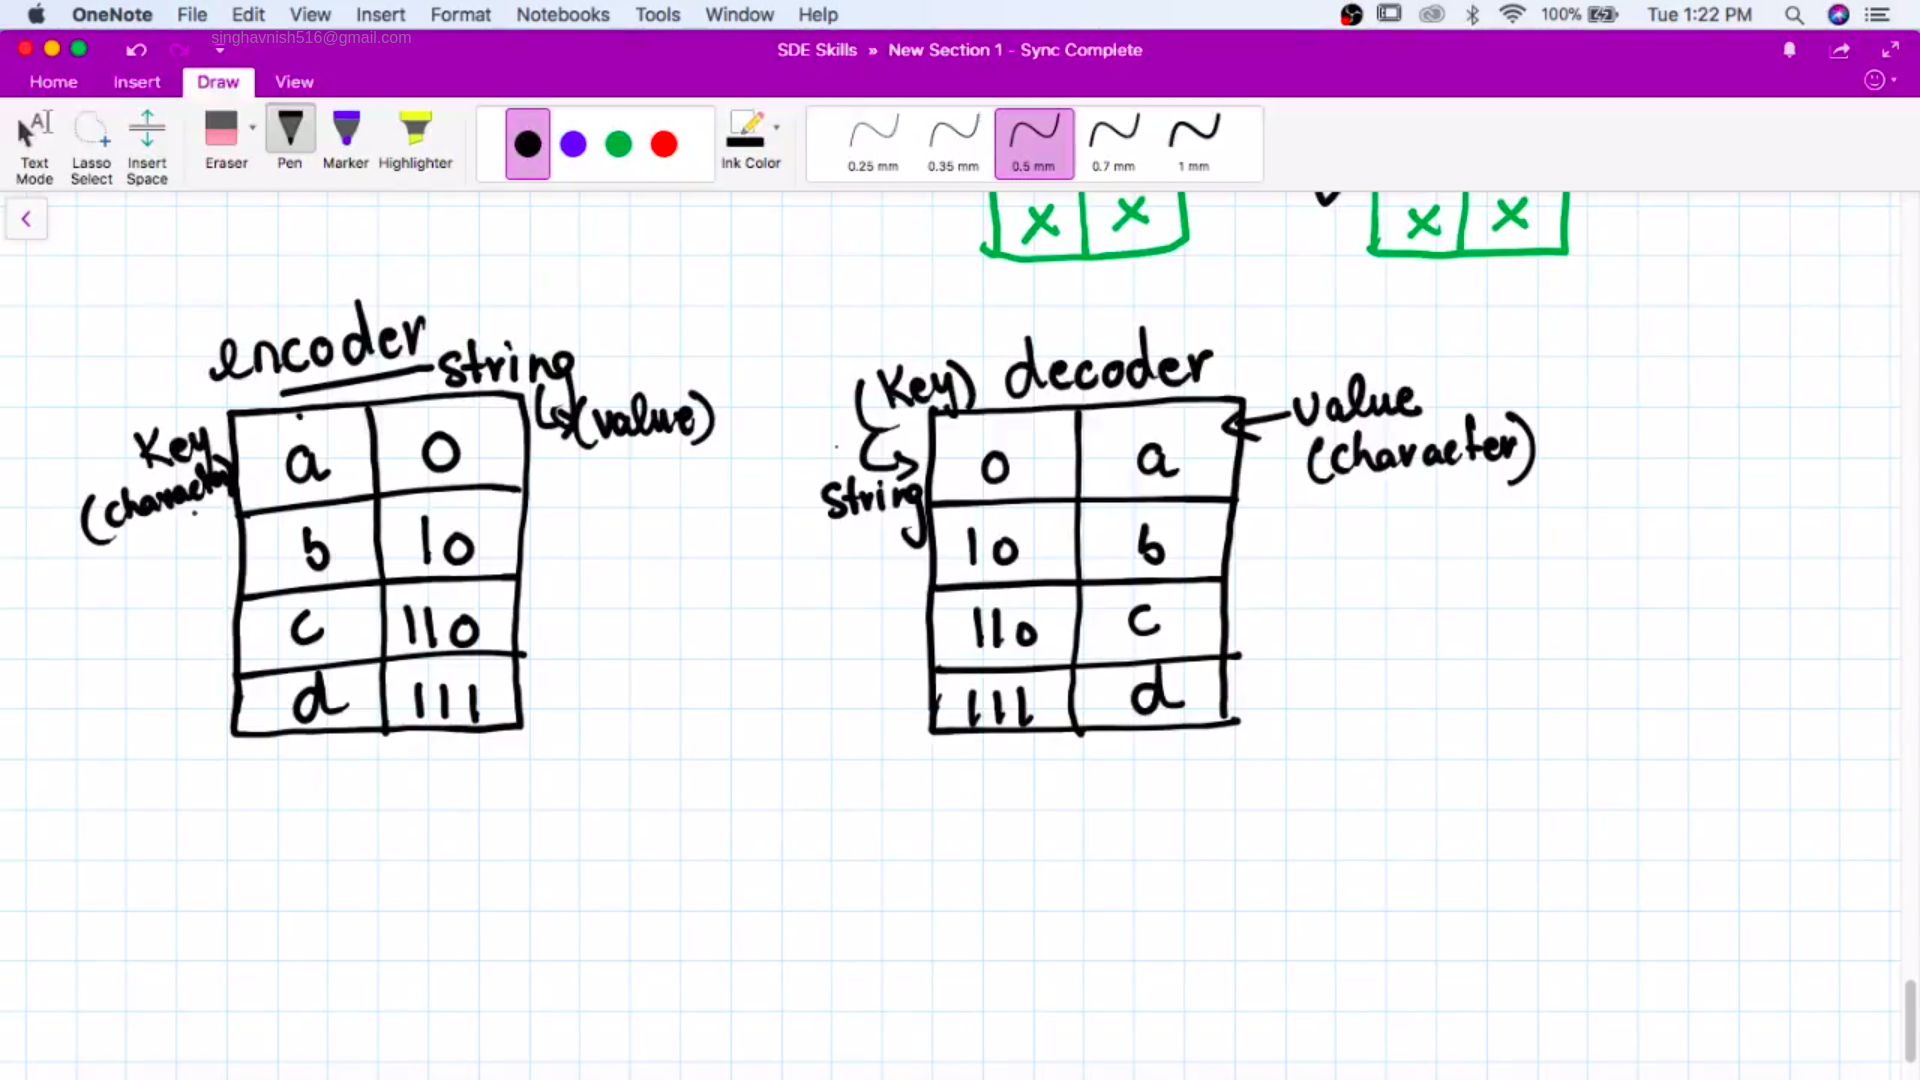 OneNote File Edit View Insert Format Notebooks Tools Window Help 100% Tue 1:22 PM
singhavnish516@gmail.com
SDE Skills » New Section 1 - Sync Complete
Home Insert Draw View
Text Mode Lasso Select Insert Space Eraser Pen Marker Highlighter Ink Color 0.25 mm 0.35 mm 0.5 mm 0.7 mm 1 mm
x x x x
encoder
string
(value)
Key
(character
a 0
b 10
c 110
d 111
(Key) decoder
string
value
(character)
0 a
10 b
110 c
111 d